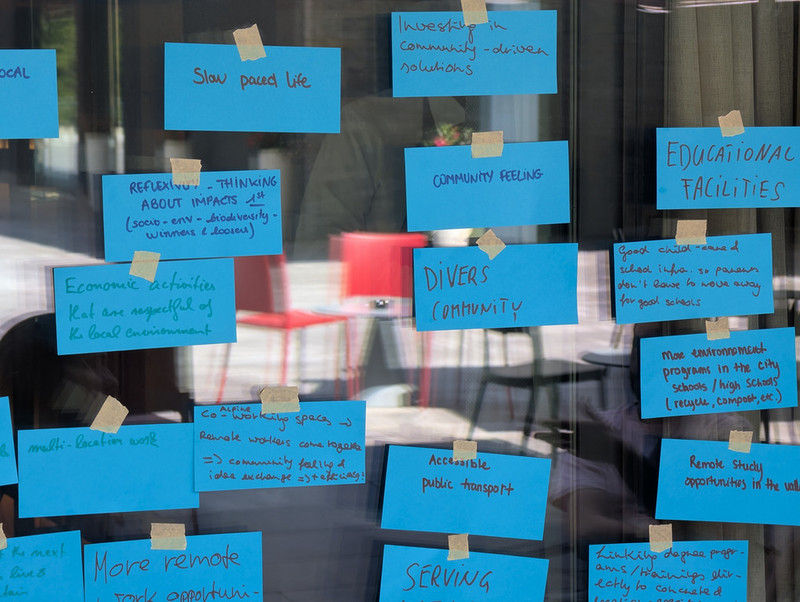 OCAL
Slow paced life
Investing in
community-driven
solutions
REFLEXIVITY - THINKING
ABOUT IMPACTS 1st
(socio-env-biodiversity-
winners & loosers)
COMMUNITY FEELING
EDUCATIONAL
FACILITIES
Economic activities
that are respectful of
the local environment
DIVERS
COMMUNITY
Good child-care &
school infra. so parents
don't have to move away
for good schools
More environment
programs in the city
schools/high schools
(recycle, compost, etc.)
multi-location work
Alpine
Co-working spaces →
Remote workers come together
=> community feeling &
idea exchange =>
Accessible
public transport
Remote Study
opportunities in the
the next
live &
tain
More remote
work opportuni-
SERVING
Linking degree progr-
ams/trainings dir-
ectly to concrete &